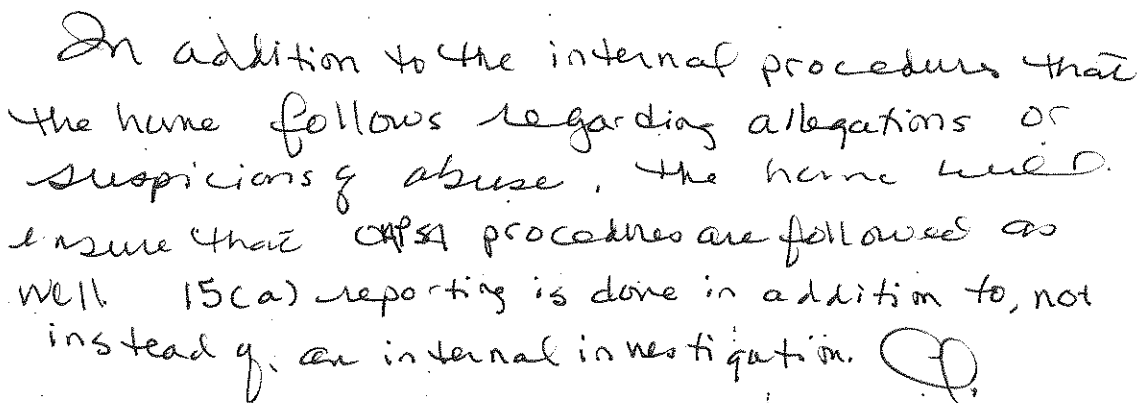 In addition to the internal procedures that
the home follows regarding allegations or
suspicions of abuse, the home will
ensure that OAPSA procedures are followed as
well 15(a) reporting is done in addition to, not
instead of, an internal investigation.